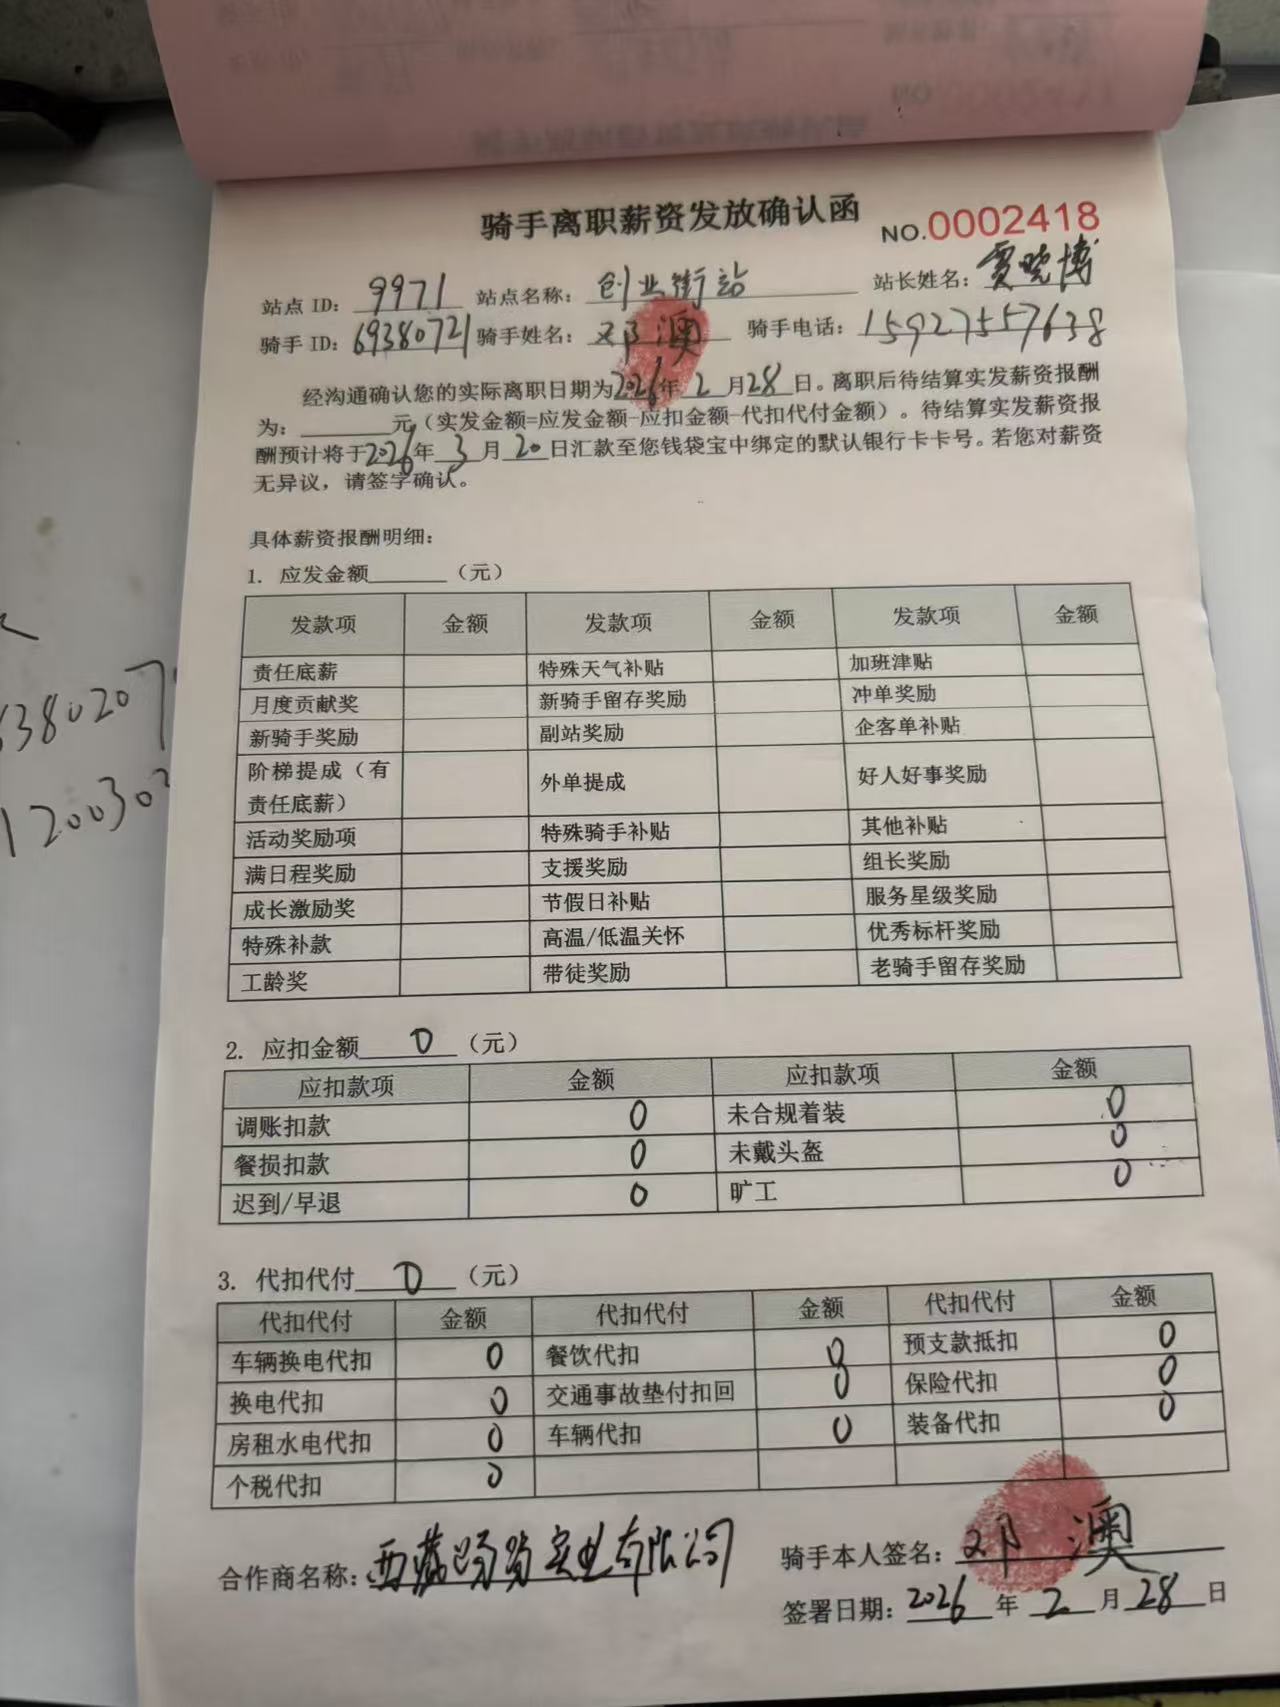 骑手离职薪资发放确认函
NO.0002418
站点 ID: 9971 站点名称: 创业街站 站长姓名: 贾晓博
骑手 ID: 69380721 骑手姓名: 邓澳 骑手电话: 15927557638
经沟通确认您的实际离职日期为2026年2月28日。离职后待结算实发薪资报酬
为: 元（实发金额=应发金额-应扣金额-代扣代付金额）。待结算实发薪资报
酬预计将于2026年3月20日汇款至您钱袋宝中绑定的默认银行卡卡号。若您对薪资
无异议，请签字确认。
具体薪资报酬明细:
1. 应发金额 （元）
发款项 金额 发款项 金额 发款项 金额
责任底薪 特殊天气补贴 加班津贴
月度贡献奖 新骑手留存奖励 冲单奖励
新骑手奖励 副站奖励 企客单补贴
阶梯提成（有
责任底薪） 外单提成 好人好事奖励
活动奖励项 特殊骑手补贴 其他补贴
满日程奖励 支援奖励 组长奖励
成长激励奖 节假日补贴 服务星级奖励
特殊补款 高温/低温关怀 优秀标杆奖励
工龄奖 带徒奖励 老骑手留存奖励
2. 应扣金额 0 （元）
应扣款项 金额 应扣款项 金额
调账扣款 0 未合规着装 0
餐损扣款 0 未戴头盔 0
迟到/早退 0 旷工 0
3. 代扣代付 0 （元）
代扣代付 金额 代扣代付 金额 代扣代付 金额
车辆换电代扣 0 餐饮代扣 0 预支款抵扣 0
换电代扣 0 交通事故垫付扣回 0 保险代扣 0
房租水电代扣 0 车辆代扣 0 装备代扣 0
个税代扣 0
合作商名称: 西藏 实业有限公司 骑手本人签名: 邓澳
签署日期: 2026年2月28日